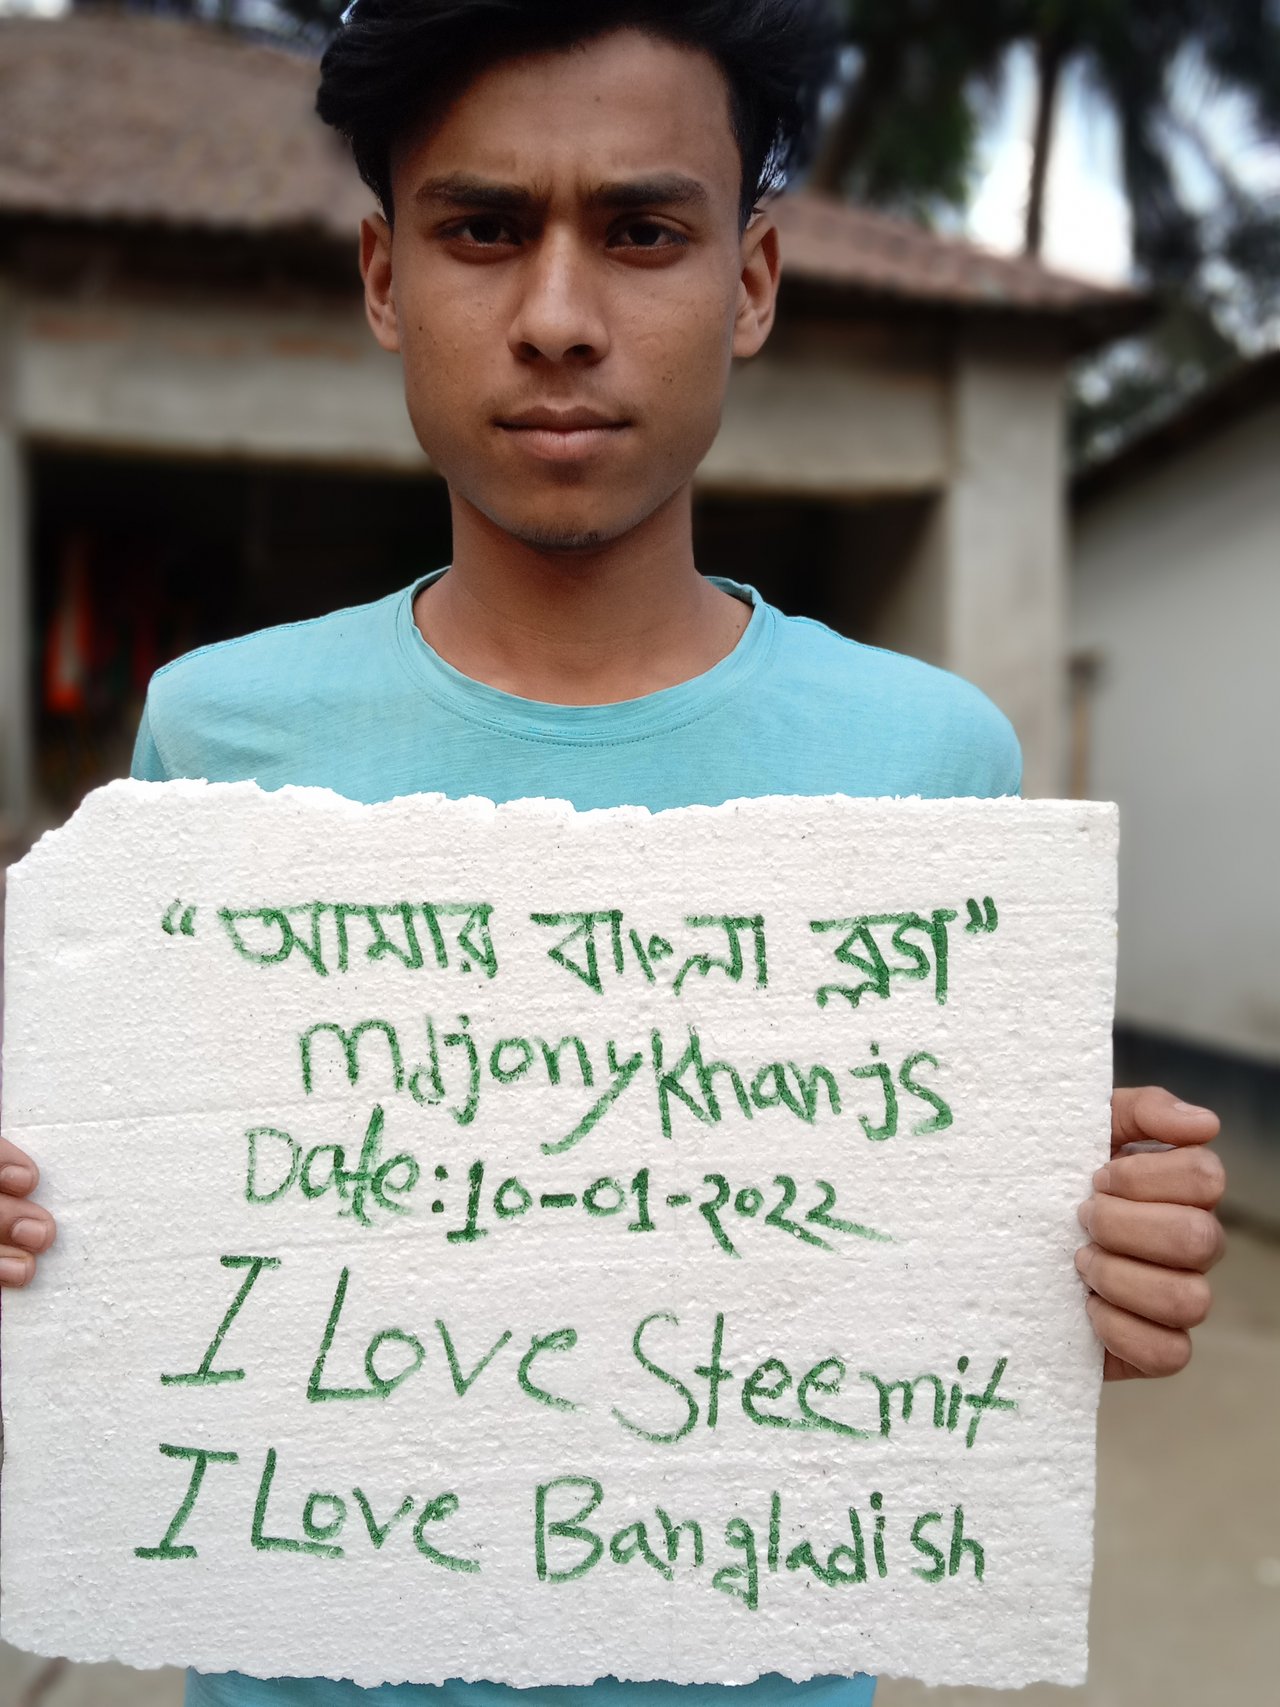 "আমার বাংলা ব্লগ"
Mdjonykhanjs
Date:10-01-2022
I Love Steemit
I Love Bangladish